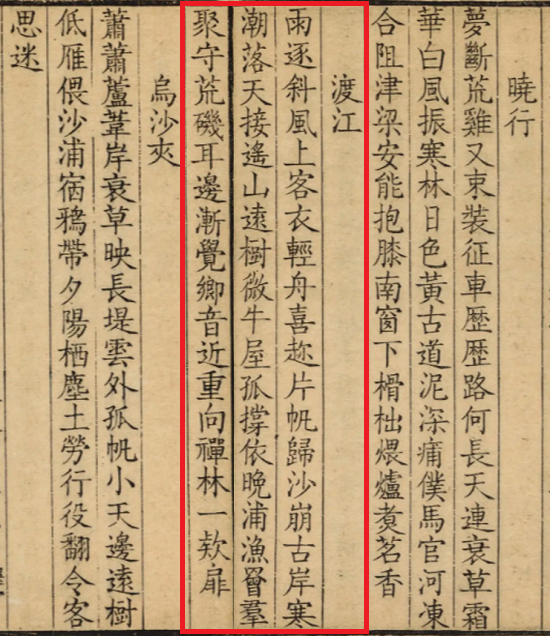 曉行
夢斷荒雞又束裝征車歷歷路何長天連衰草霜
華白風振寒林日色黃古道泥深痡僕馬官河凍
合阻津梁安能抱膝南窗下榾柮煨爐煑茗香
渡江
雨逐斜風上客衣輕舟喜趂片帆歸沙崩古岸寒
潮落天接遙山遠樹微牛屋孤撐依晚浦漁罾羣
聚守荒磯耳邊漸覺鄉音近重向禪林一欵扉
烏沙夾
蕭蕭蘆葦岸衰草映長堤雲外孤帆小天邊遠樹
低雁偎沙浦宿鴉帶夕陽栖塵土勞行役翻令客
思迷